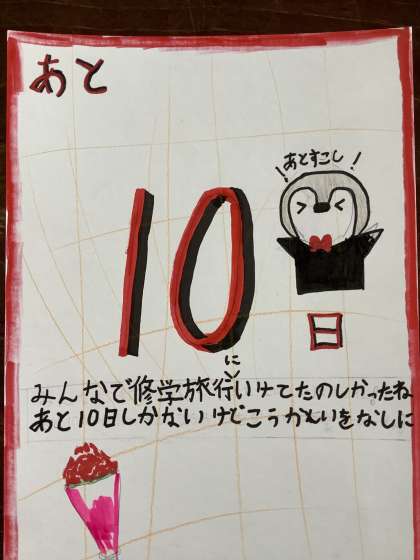 あと
！あとすこし！
10
日
に
みんなで修学旅行いけてたのしかったね
あと10日しかないけどこうかいをなしに